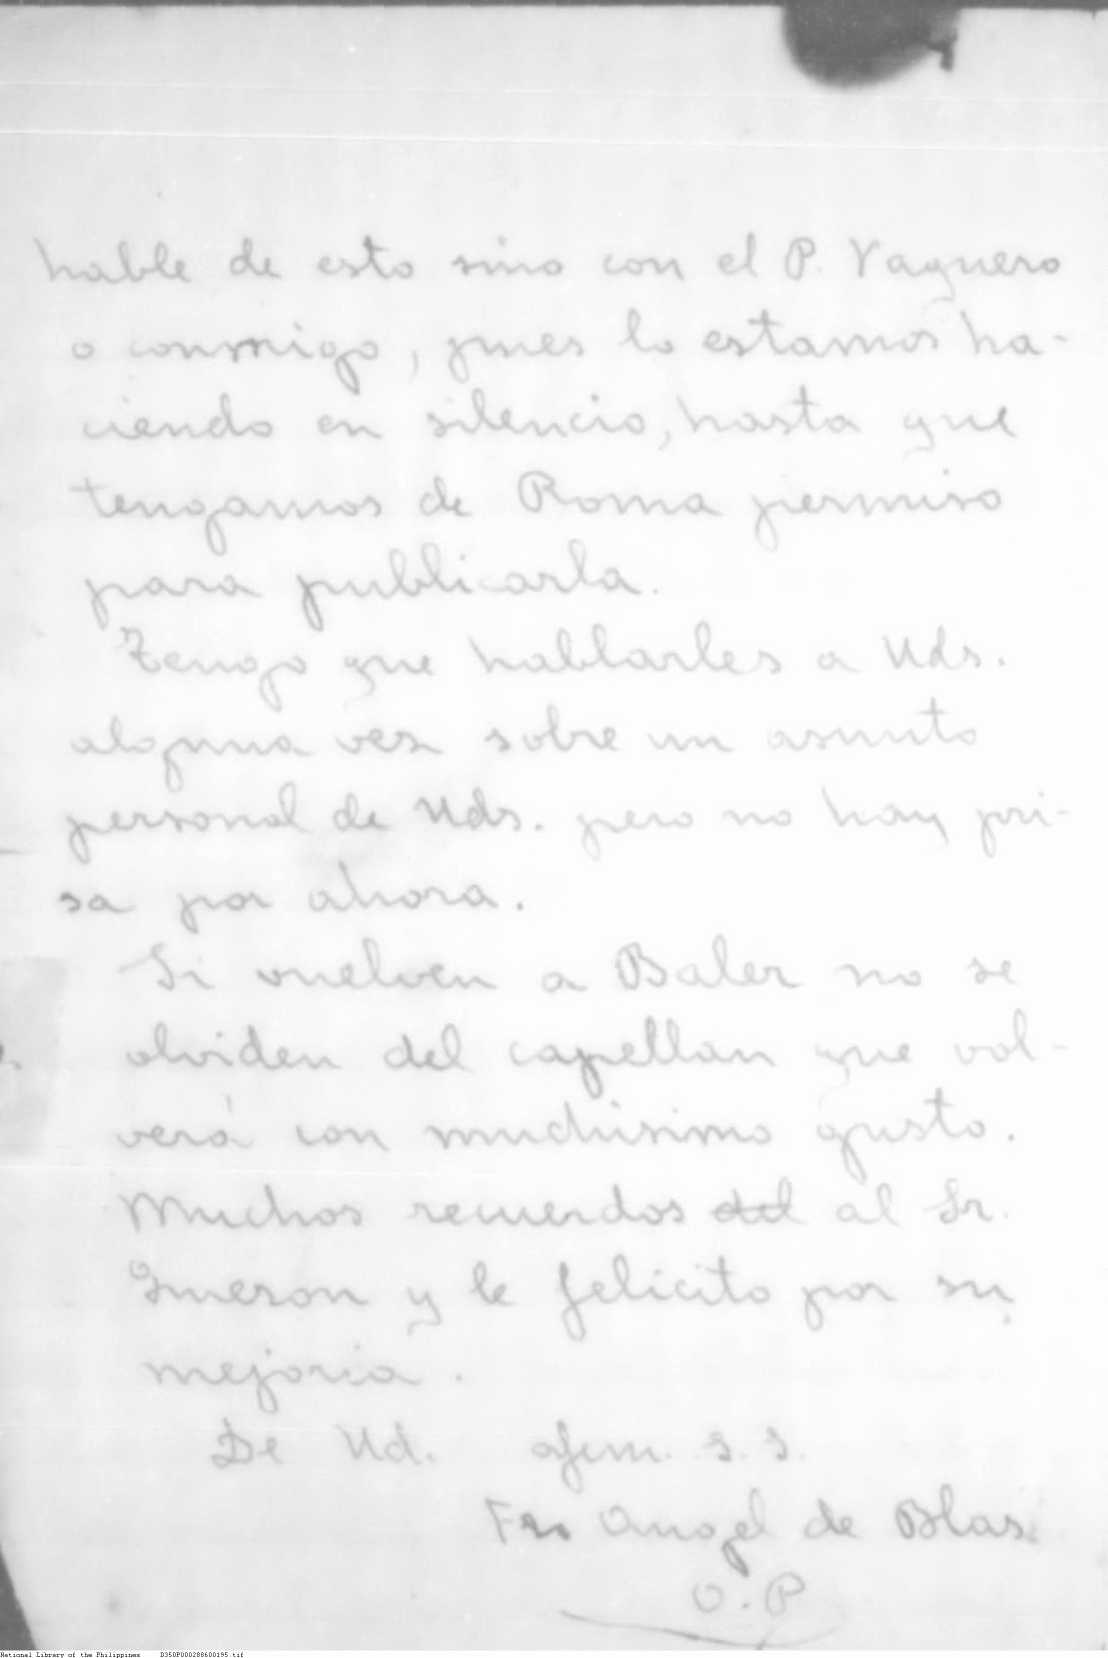 hable de esto sino con el P. Vaquero
o conmigo, pues lo estamos ha-
ciendo en silencio, hasta que
tengamos de Roma permiso
para publicarla.
Tengo que hablarles a Uds.
alguna vez sobre un asunto
personal de Uds. pero no hay pri-
sa por ahora.
Si vuelven a Baler no se
olviden del capellan que vol-
verá con muchisimo gusto.
Muchos recuerdos del al Sr.
y le felicito por su
mejoria.
De Ud. afem. s. s.
Fr. Angel de Blas
O.P
National Library of the Philippines D350P000288600195.tif